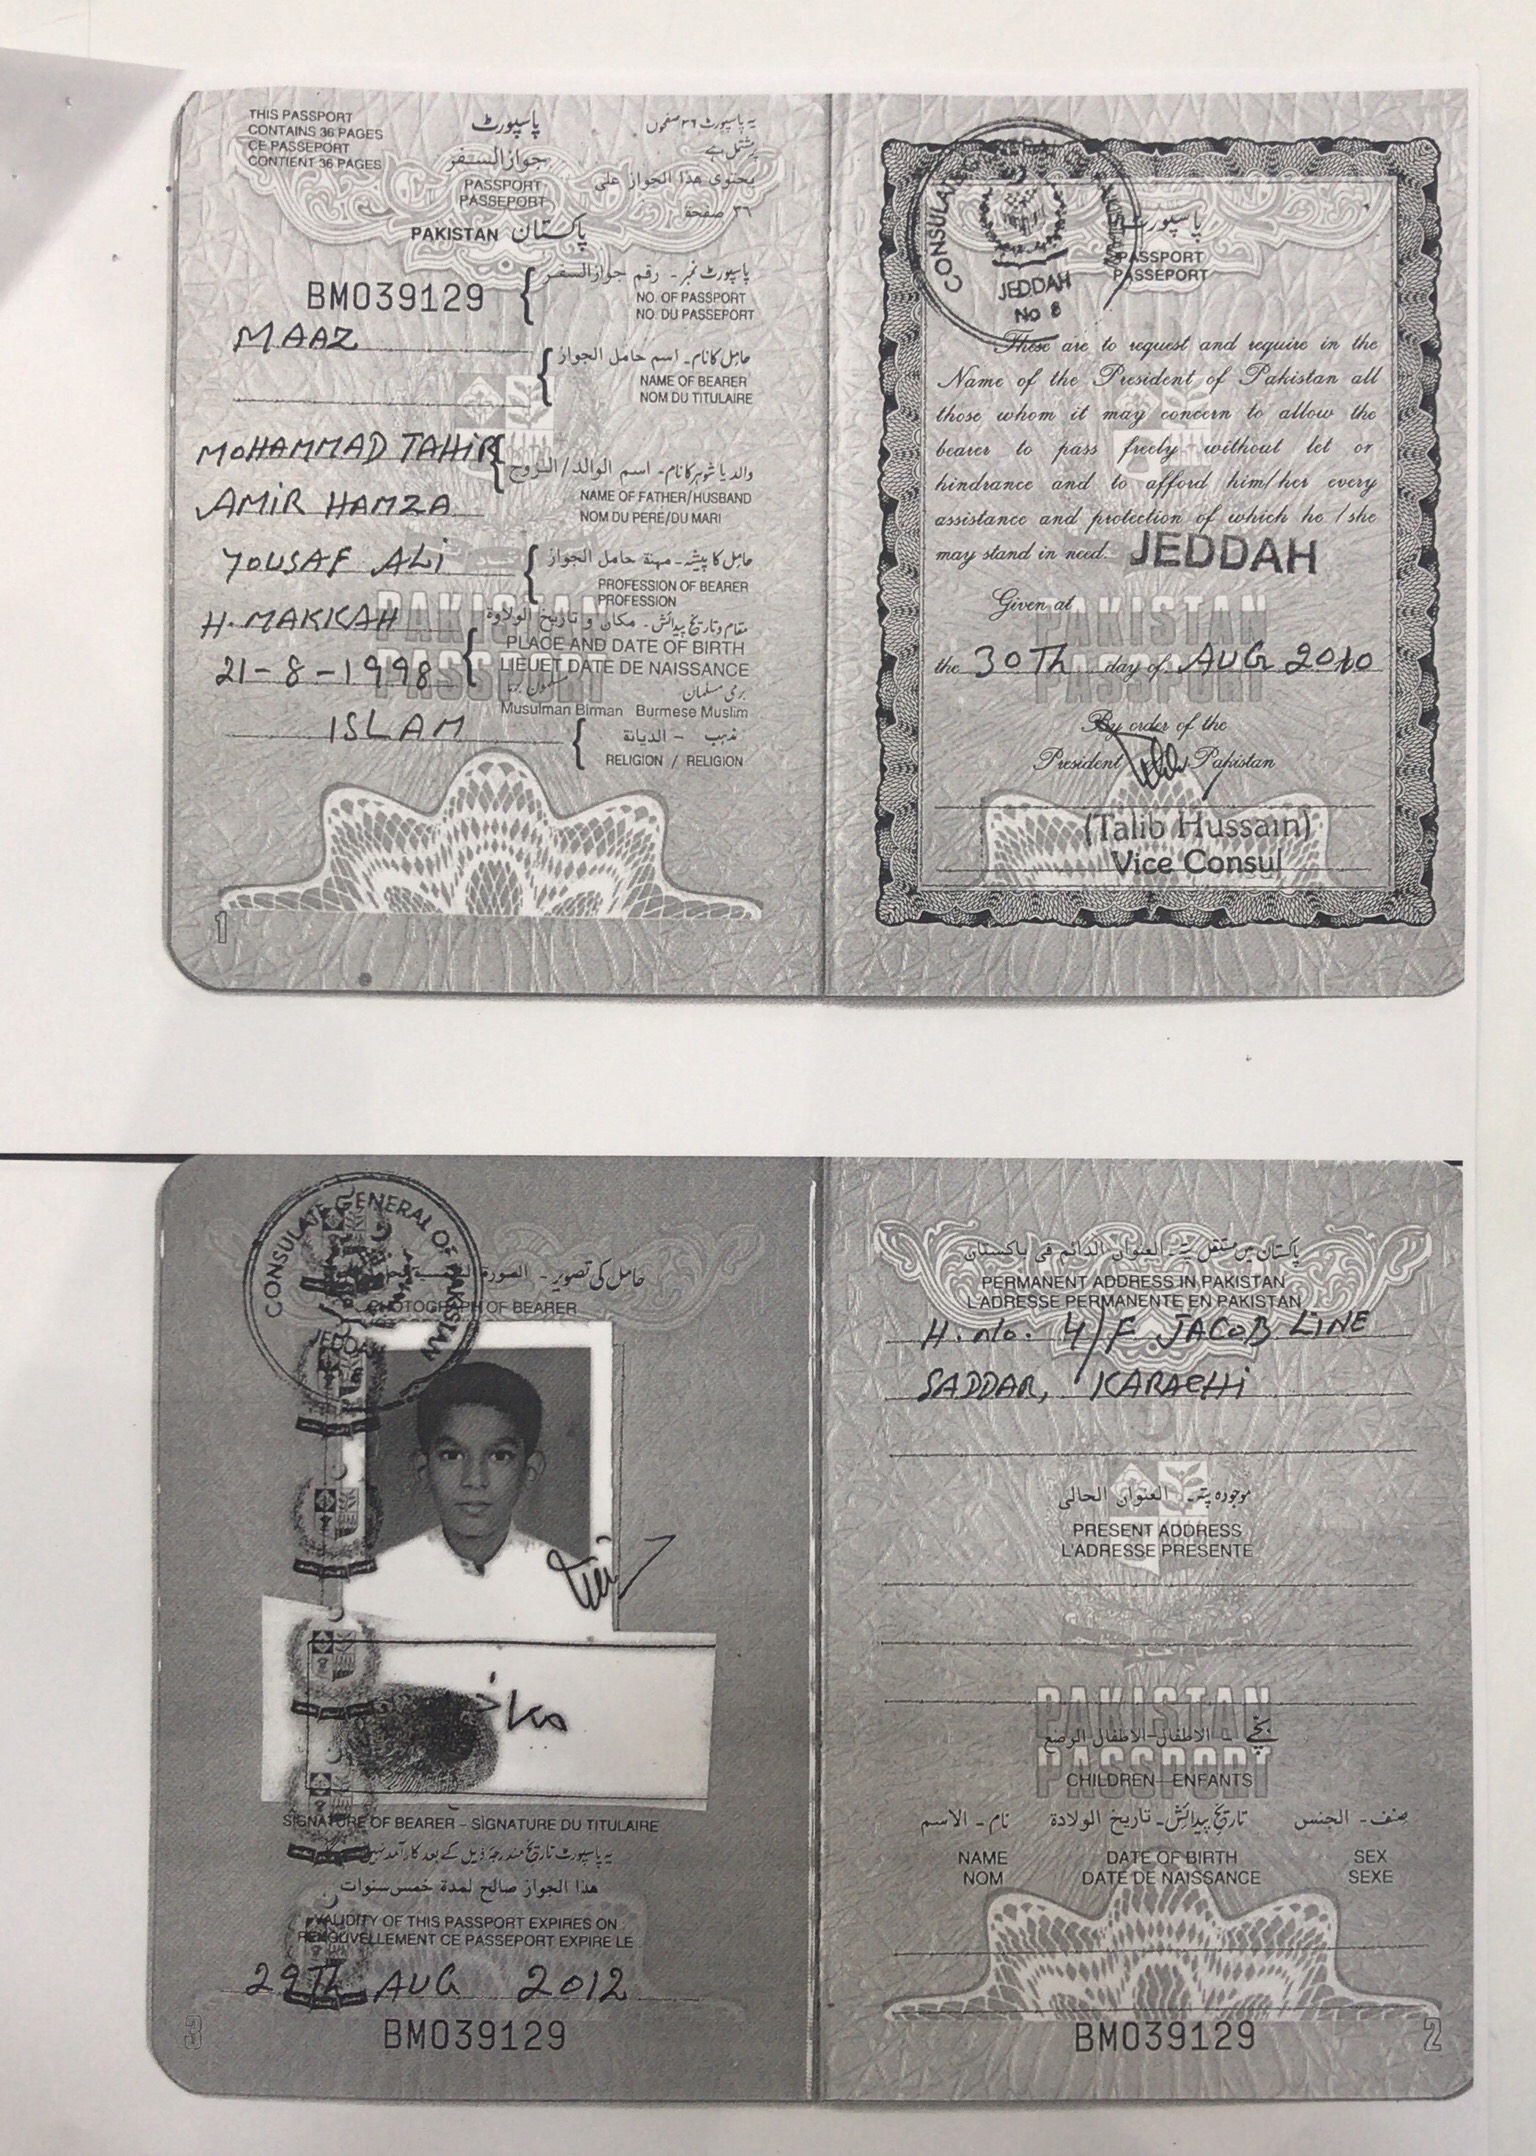 THIS PASSPORT
CONTAINS 36 PAGES
CE PASSEPORT
CONTIENT 36 PAGES
پاسپورٹ
جواز السفر
PASSPORT
PASSEPORT
PAKISTAN پاکستان
یہ پاسپورٹ ۳۶ صفحوں
پر مشتمل ہے
يحتوى هذا الجواز على
٣٦ صفحة
BM039129
پاسپورٹ نمبر - رقم جواز السفر
NO. OF PASSPORT
NO. DU PASSEPORT
MAAZ
حامل کا نام - اسم حامل الجواز
NAME OF BEARER
NOM DU TITULAIRE
MOHAMMAD TAHIR
AMIR HAMZA
والد یا شوہر کا نام - اسم الوالد / الزوج
NAME OF FATHER/HUSBAND
NOM DU PERE/DU MARI
YOUSAF ALI
حامل کا پیشہ - مهنة حامل الجواز
PROFESSION OF BEARER
PROFESSION
H. MAKKAH
21-8-1998
مقام و تاریخ پیدائش - مكان و تاريخ الولادة
PLACE AND DATE OF BIRTH
LIEU ET DATE DE NAISSANCE
برمی مسلمان
Musulman Birman Burmese Muslim
ISLAM
مذہب - الديانة
RELIGION / RELIGION
PAKISTAN
PASSPORT
1
CONSULATE GENERAL OF PAKISTAN
JEDDAH
No 8
پاسپورٹ
PASSPORT
PASSEPORT
These are to request and require in the
Name of the President of Pakistan all
those whom it may concern to allow the
bearer to pass freely without let or
hindrance and to afford him/her every
assistance and protection of which he / she
may stand in need. JEDDAH
Given at
the 30TH day of AUG 2010
By order of the
President of Pakistan
(Talib Hussain)
Vice Consul
PAKISTAN
PASSPORT
CONSULATE GENERAL OF PAKISTAN
JEDDAH
حامل کی تصویر - الصورة الشمسية
PHOTOGRAPH OF BEARER
معاذ
SIGNATURE OF BEARER - SIGNATURE DU TITULAIRE
یہ پاسپورٹ تاریخ مندرجہ ذیل کے بعد کارآمد نہیں
هذا الجواز صالح لمدة خمس سنوات
VALIDITY OF THIS PASSPORT EXPIRES ON
RENOUVELLEMENT CE PASSEPORT EXPIRE LE
29TH AUG 2012
BM039129
3
پاکستان میں مستقل پتہ - العنوان الدائم فى باكستان
PERMANENT ADDRESS IN PAKISTAN
L'ADRESSE PERMANENTE EN PAKISTAN
H. No. 4/F JACOB LINE
SADDAR, KARACHI
موجودہ پتہ - العنوان الحالى
PRESENT ADDRESS
L'ADRESSE PRESENTE
PAKISTAN
PASSPORT
بچے - الاطفال - الاطفال الرضع
CHILDREN—ENFANTS
نام - الاسم تاریخ پیدائش - تاريخ الولادة صنف - الجنس
NAME DATE OF BIRTH SEX
NOM DATE DE NAISSANCE SEXE
BM039129
2